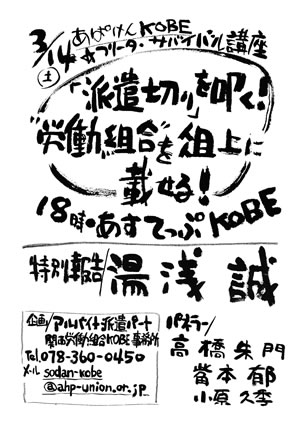 3/14
(土)
あぱけんKOBE
☆フリーター・サバイバル講座
「派遣切り」を叩く!
"労働組合"を俎上に
載せる!
18時・あすてっぷKOBE
特別報告/湯浅 誠
企画/アルバイト派遣パート
関西労働組合KOBE事務所
Tel.078-360-0450
メール sodan-kobe
@ahp-union.or.jp
パネラー/
高橋朱門
本 郁
小原 久季